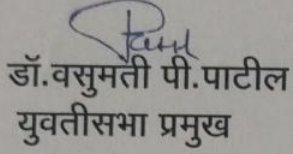 डॉ.वसुमती पी.पाटील
युवतीसभा प्रमुख